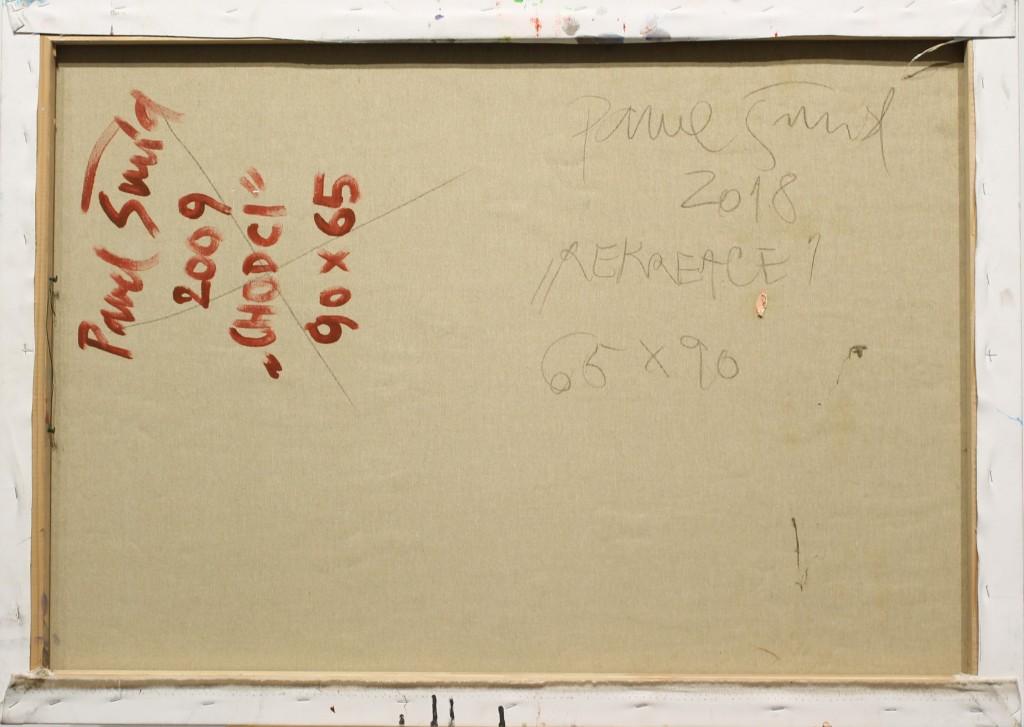 Pavel Šmíd
2009
„CHODCI"
90 x 65
Pavel Šmíd
2018
„REKREACE"
65 x 90